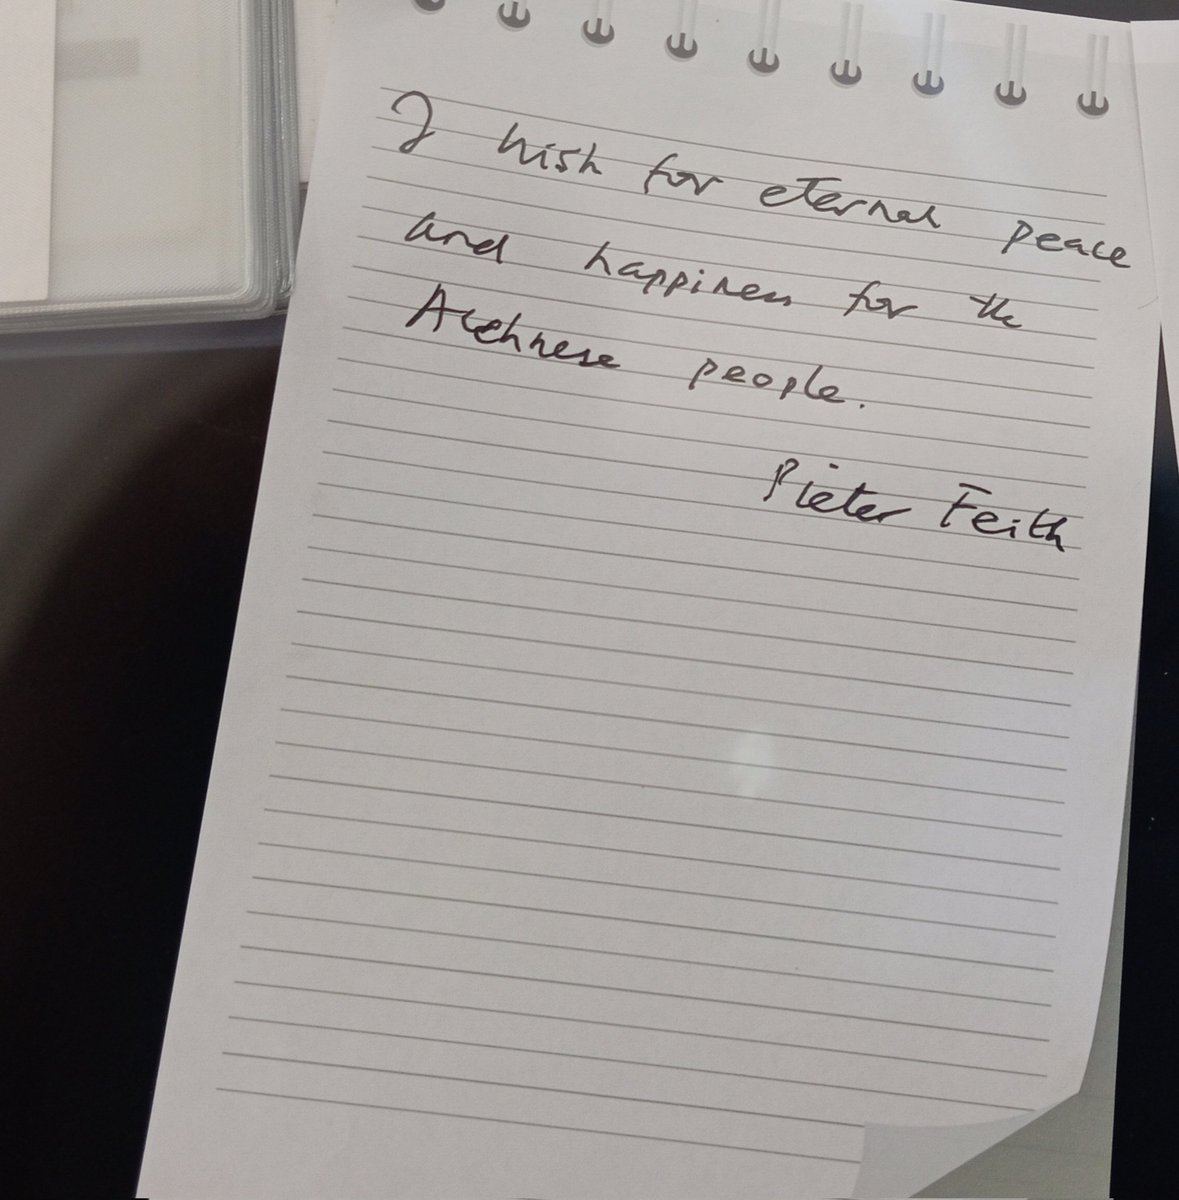 I wish for eternal peace
and happiness for the
Acehnese people.
Pieter Feith